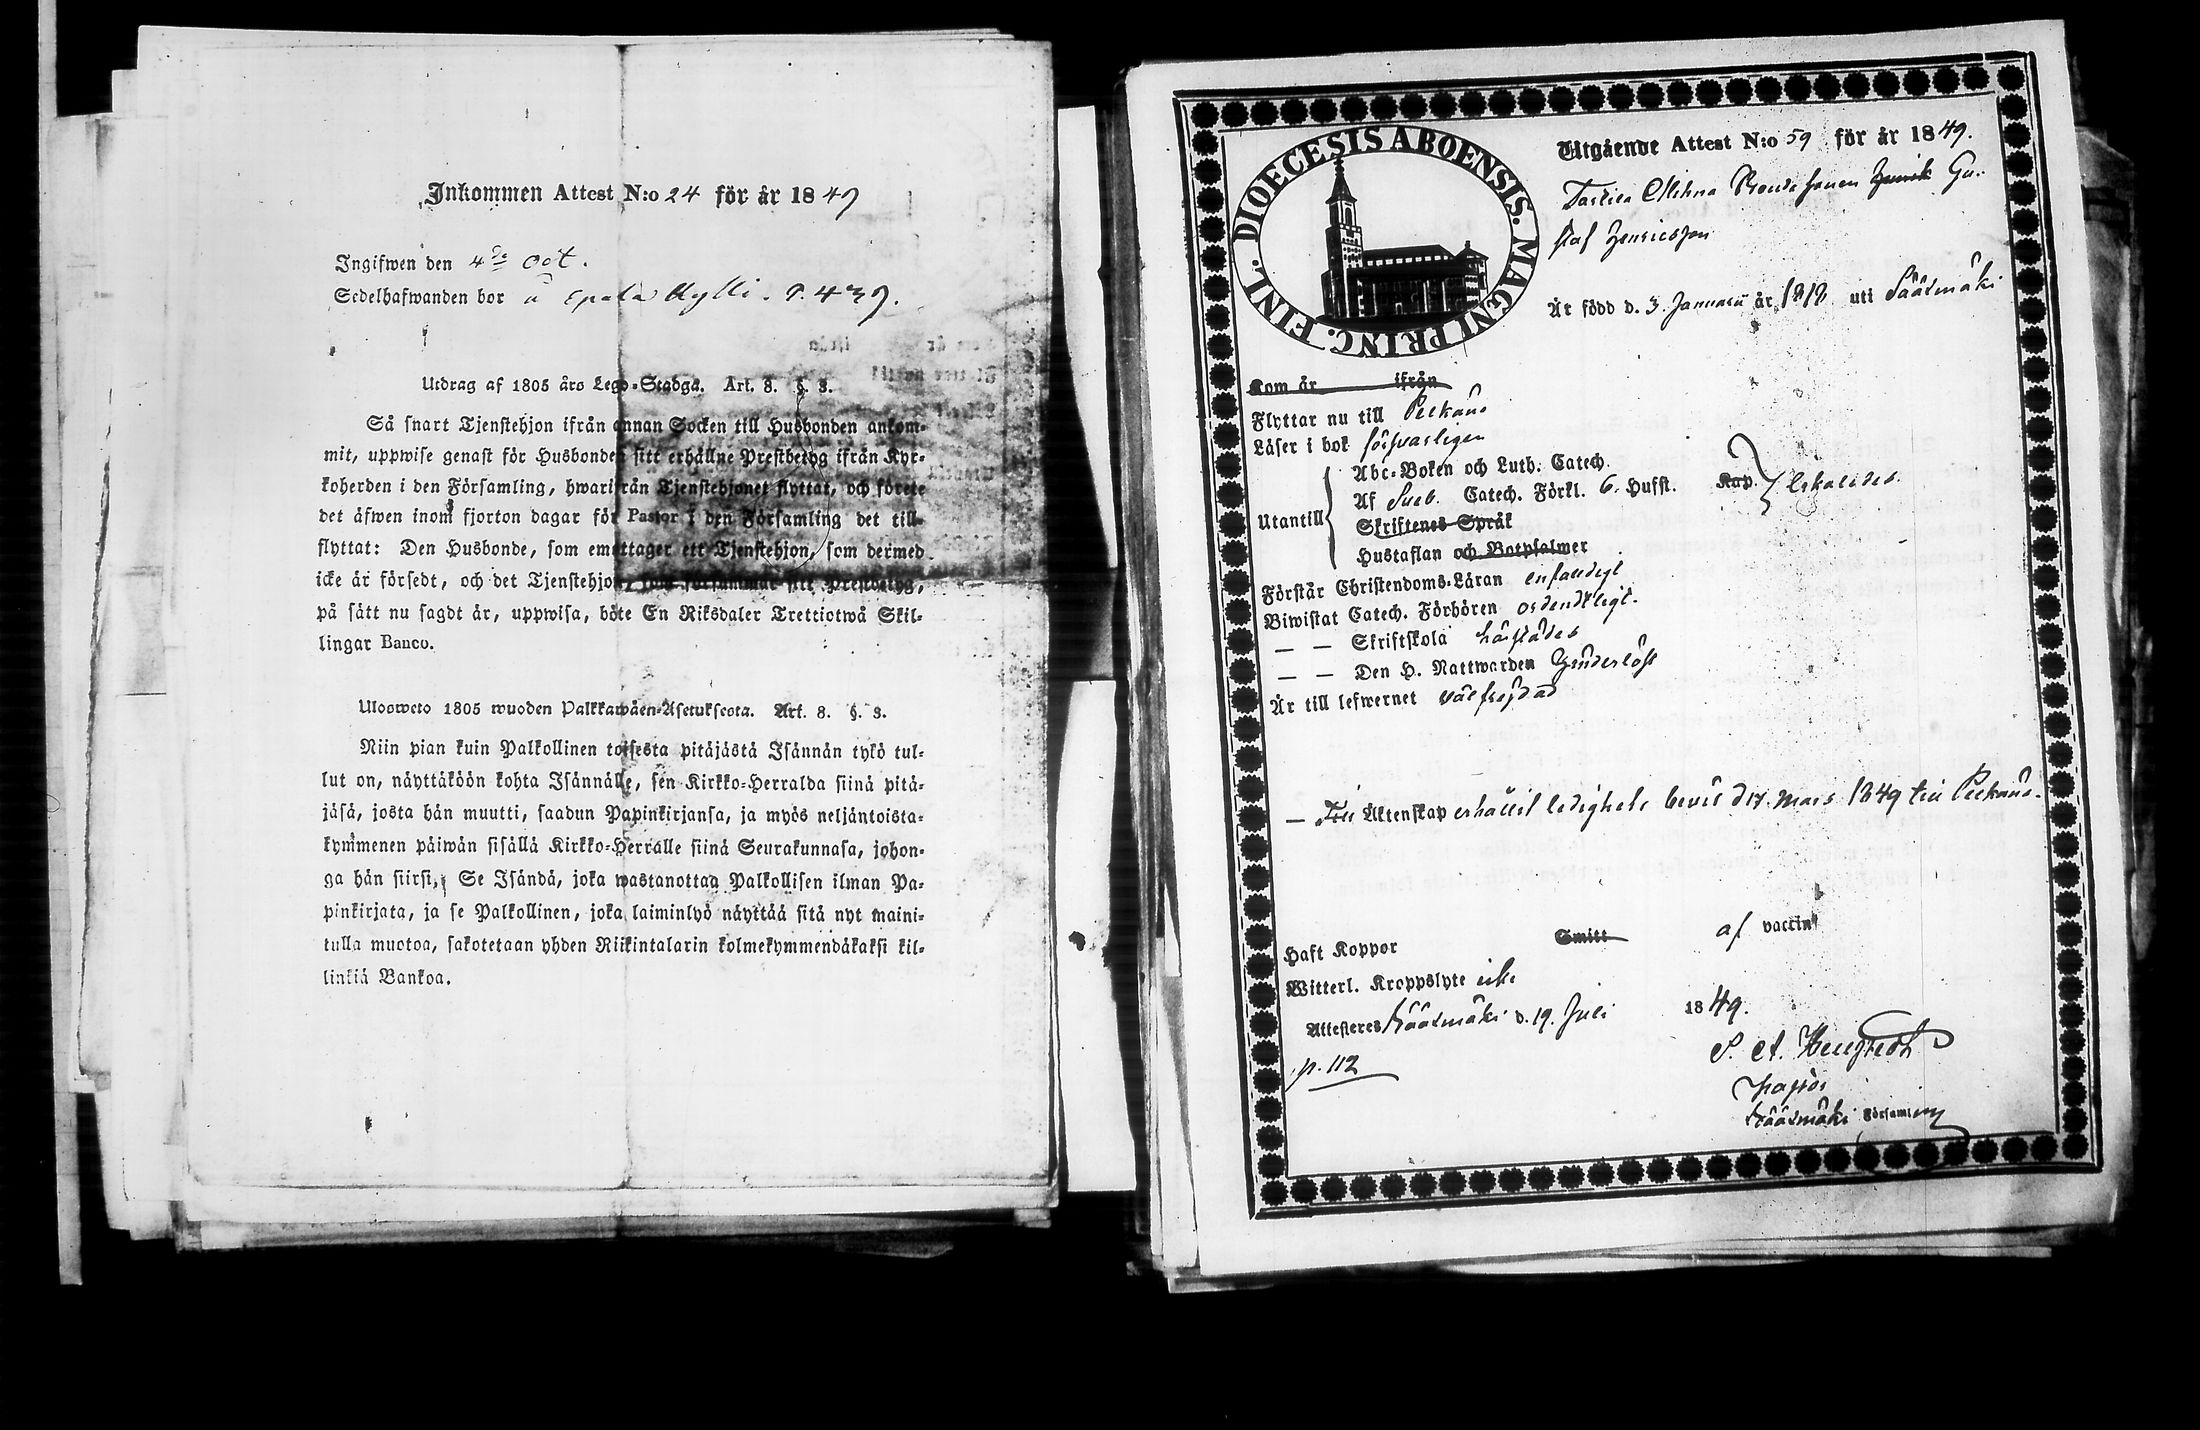 Inkommen Attest N:o 24 för år 1849
Ingifwen den 4de Oct.
Sedelhafwanden bor å Epala Kylli. P. 439.
Utdrag af 1805 års Lego-Stadga. Art. 8. §. 3.
Så snart Tjenstehjon ifrån annan Socken till Husbonden ankom-
mit, uppwise genast för Husbonden sitt erhållne Prestbetyg ifrån Kyr-
koherden i den Församling, hwarifrån Tjenstehjonet flyttat, och förete
det äfwen inom fjorton dagar för Pastor i den Församling det till-
flyttat: Den Husbonde, som emottager ett Tjenstehjon, som dermed
icke är försedt, och det Tjenstehjon, som försummar sitt Prestbetyg,
på sätt nu sagdt är, uppwisa, böte En Riksdaler Trettiotwå Skil-
lingar Banco.
Ulosweto 1805 wuoden Palkkawäen-Asetuksesta. Art. 8. §. 3.
Niin pian kuin Palkollinen toisesta pitäjästä Isännän tykö tul-
lut on, näyttäköön kohta Isännälle, sen Kirkko-Herralda siinä pitä-
jäsä, josta hän muutti, saadun Papinkirjansa, ja myös neljäntoista-
kymmenen päiwän sisällä Kirkko-Herralle siinä Seurakunnasa, johon-
ga hän siirsi. Se Isändä, joka wastanottaa Palkollisen ilman Pa-
pinkirjata, ja se Palkollinen, joka laiminlyö näyttää sitä nyt maini-
tulla muotoa, sakotetaan yhden Riikintalarin kolmekymmendäkaksi kil-
linkiä Bankoa.
DIOECESIS ABOENSIS. MAGNI PRINC. FINL.
Utgående Attest N:o 59 för år 1849.
Mihna Bondesonen Henrik Gu-
staf Henricsson
Är född d. 3 Januarii år 1818 uti Sääxmäki
Kom år ifrån
Flyttar nu till Pelkäne
Läser i bok försvarligen
Utantill
Abc-Boken och Luth. Catech.
Af Sveb. Catech. Förkl. 6. Hufst. Kap.
Skriftenes Språk
Hustaflan och Botpsalmer
Förstår Christendoms-Läran enfaldigt
Biwistat Catech. Förhören ordentligt.
— — Skriftskola härstädes
— — Den H. Nattwarden hinderlöst
Är till lefwernet välfrejdad
— Till Äktenskap erhållit ledighets bevis d 17. Mars 1849 till Pelkäne.
Haft Koppor Smitt af vaccin
Witterl. Kroppslyte icke
Attesteres Sääxmäki d. 19. Juli 1849.
p. 112
Sääxmäki Församling